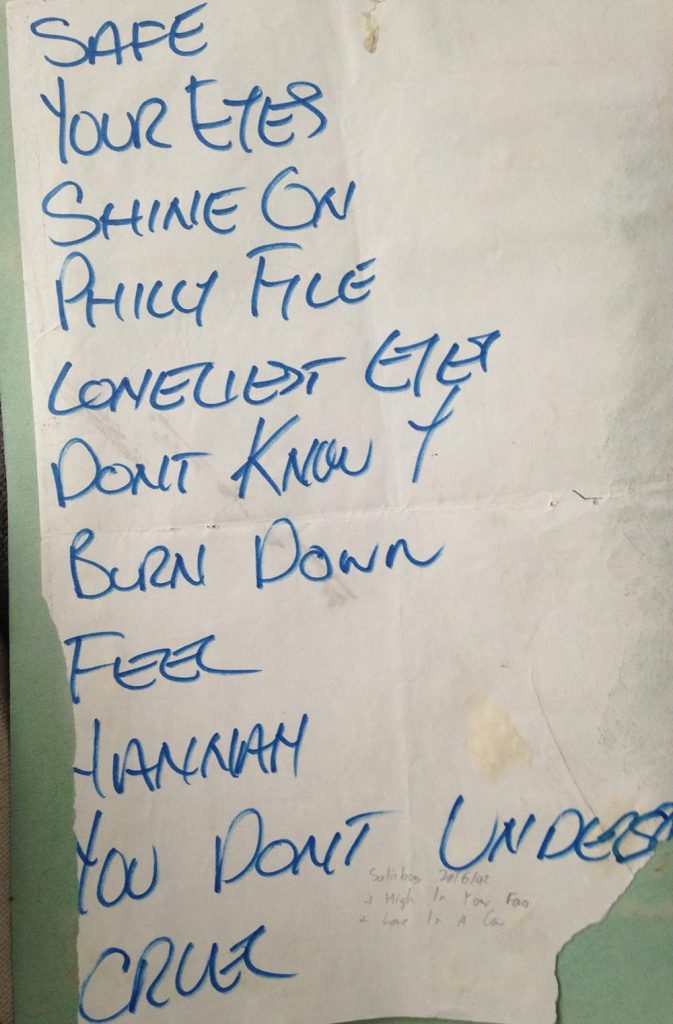 SAFE
YOUR EYES
SHINE ON
PHILLY FILE
LONELIEST EYES
DONT KNOW Y
BURN DOWN
FEEL
HANNAH
YOU DONT UNDERST
Salisbury 20/6/02
+ High In Your Face
+ Love In A Car
CRUEL